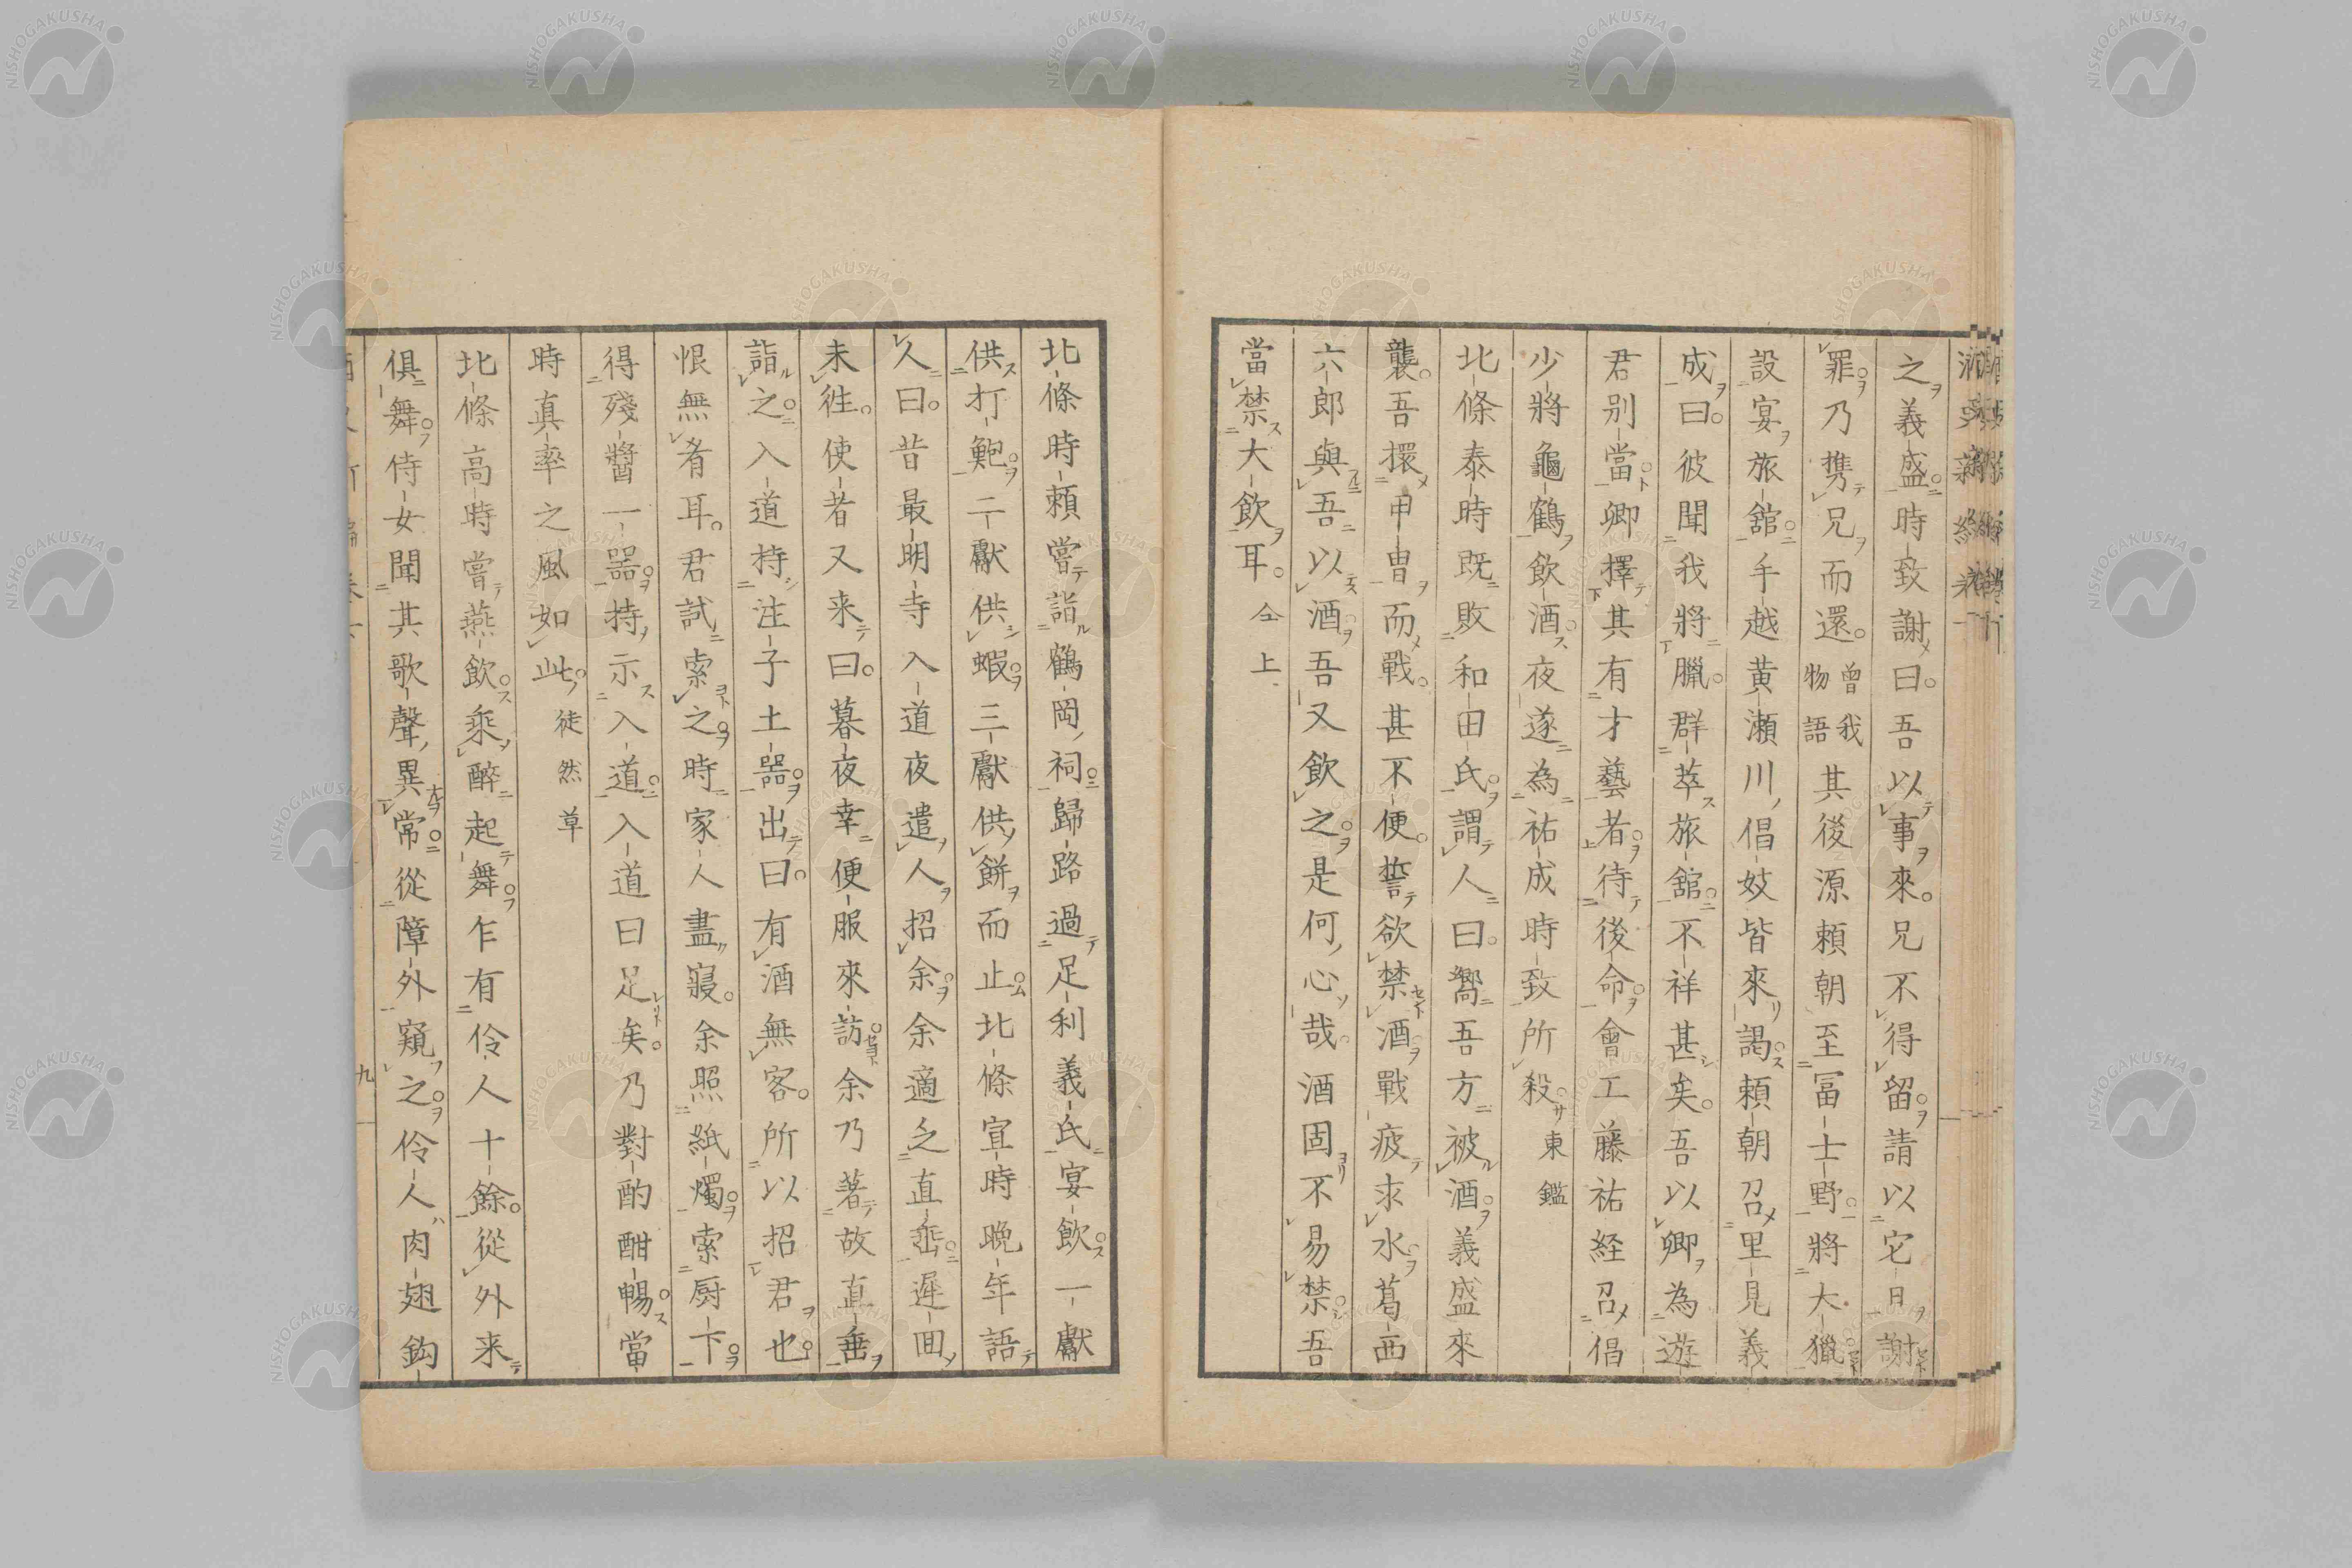 之義盛時致謝曰吾以事來兄不得留請以它日謝
罪乃携兄而還曾我物語其後源頼朝至冨士野將大獵
設宴旅舘手越黄瀬川倡妓皆來謁頼朝召里見義
成曰彼聞我將臘群萃旅舘不祥甚矣吾以卿為遊
君别當卿擇其有才藝者待後命會工藤祐経召倡
少將龜鶴飲酒夜遂為祐成時致所殺東鑑
北條泰時既敗和田氏謂人曰嚮吾方被酒義盛來
襲吾擐甲冑而戰甚不便誓欲禁酒戰疲求水葛西
六郎與吾以酒吾又飲之是何心哉酒固不易禁吾
當禁大飲耳仝上
北條時頼嘗詣鶴岡祠歸路過足利義氏宴飲一獻
供打鮑二獻供蝦三獻供餅而止北條宣時晩年語
人曰昔最明寺入道夜遣人招余余適乏直垂遲回
未徃使者又来曰暮夜幸便服來訪余乃著故直垂
詣之入道持注子土器出曰有酒無客所以招君也
恨無肴耳君試索之時家人盡寢余照紙燭索厨下
得殘醬一器持示入道入道曰足矣乃對酌酣暢當
時真率之風如此徒然草
北條高時嘗燕飲乘醉起舞乍有伶人十餘從外来
俱舞侍女聞其歌聲異常從障外窺之伶人肉翅鈎
九
NISHOGAKUSHA